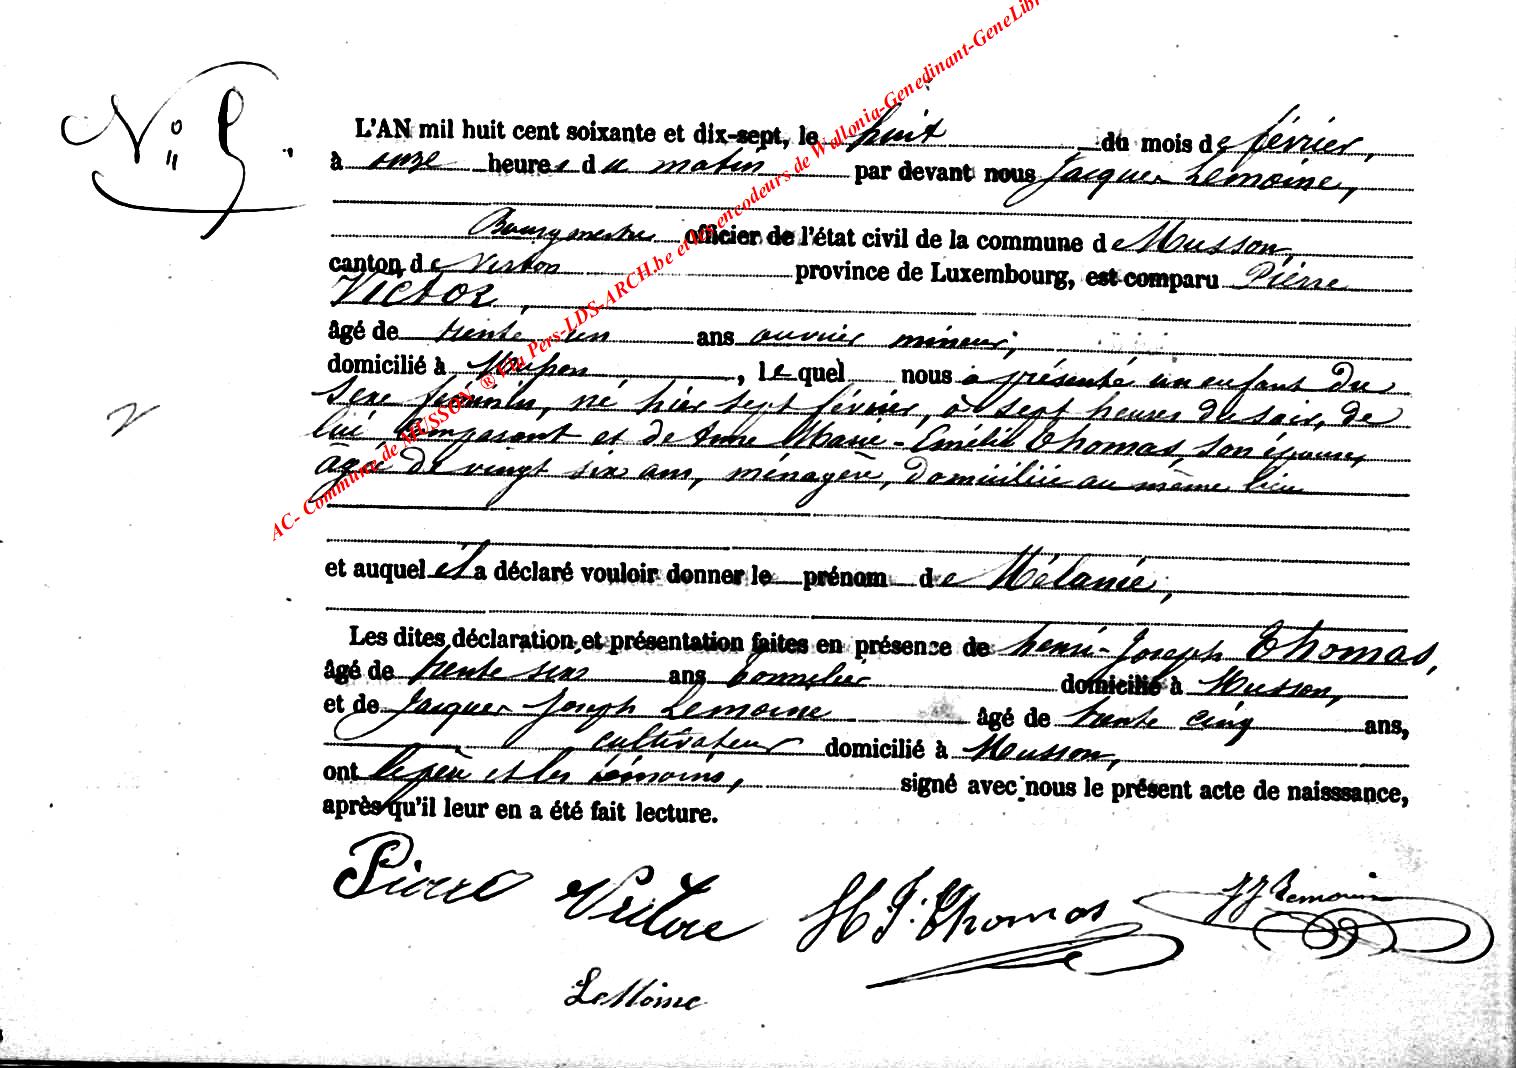 N° 5.
L'AN mil huit cent soixante et dix-sept, le huit du mois de février,
à onze heures du matin par devant nous Jacques Lemoine,
Bourgmestre officier de l'état civil de la commune de Musson,
canton de Virton province de Luxembourg, est comparu Pierre
VICTOR,
âgé de trente un ans ouvrier mineur,
domicilié à Musson, lequel nous a présenté un enfant du
sexe féminin, né hier sept février, à sept heures du soir, de
lui comparant et de Anne Marie-Emélie Thomas, son épouse,
âgée de vingt six ans, ménagère, domiciliée au même lieu
et auquel il a déclaré vouloir donner le prénom de Mélanie,
Les dites déclaration et présentation faites en présence de henri-Joseph Thomas,
âgé de trente six ans domicilié à Musson,
et de Jacques Joseph Lemoine âgé de trente cinq ans,
cultivateur domicilié à Musson,
ont le père et les témoins, signé avec nous le présent acte de naisssance,
après qu'il leur en a été fait lecture.
Pierre Victore H J. Thomas JJ Lemoine
LeMoine
AC- Commune de MUSSON ® Via Pers-LDS-ARCH.be et les encodeurs de Wallonia-Genedinant-GeneLibr